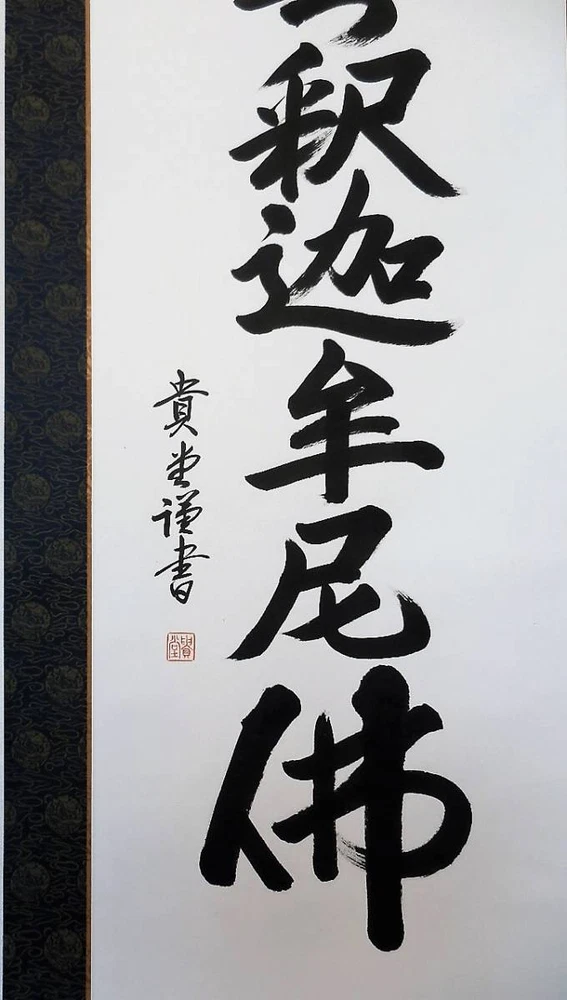 釈迦牟尼佛
貴堂謹書
貴堂